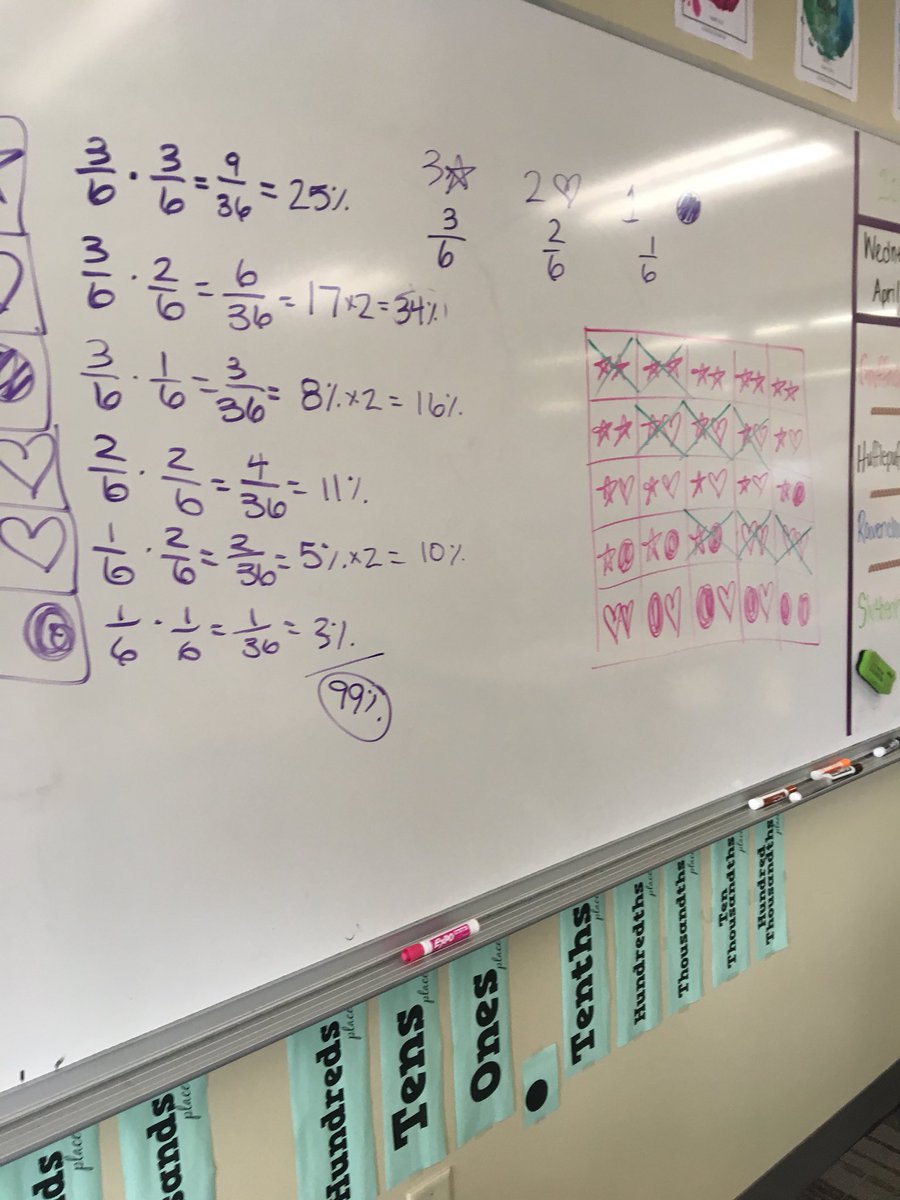 3/6 · 3/6 = 9/36 = 25%
3/6 · 2/6 = 6/36 = 17 x 2 = 34%
3/6 · 1/6 = 3/36 = 8% x 2 = 16%
2/6 · 2/6 = 4/36 = 11%
1/6 · 2/6 = 2/36 = 5% x 2 = 10%
1/6 · 1/6 = 1/36 = 3%
99%
3☆ 2♡ 1 ●
3/6 2/6 1/6
April
Expo
Hundreds place
Tens place
Ones place
Tenths place
Hundredths place
Thousandths place
Ten Thousandths place
Hundred Thousandths place